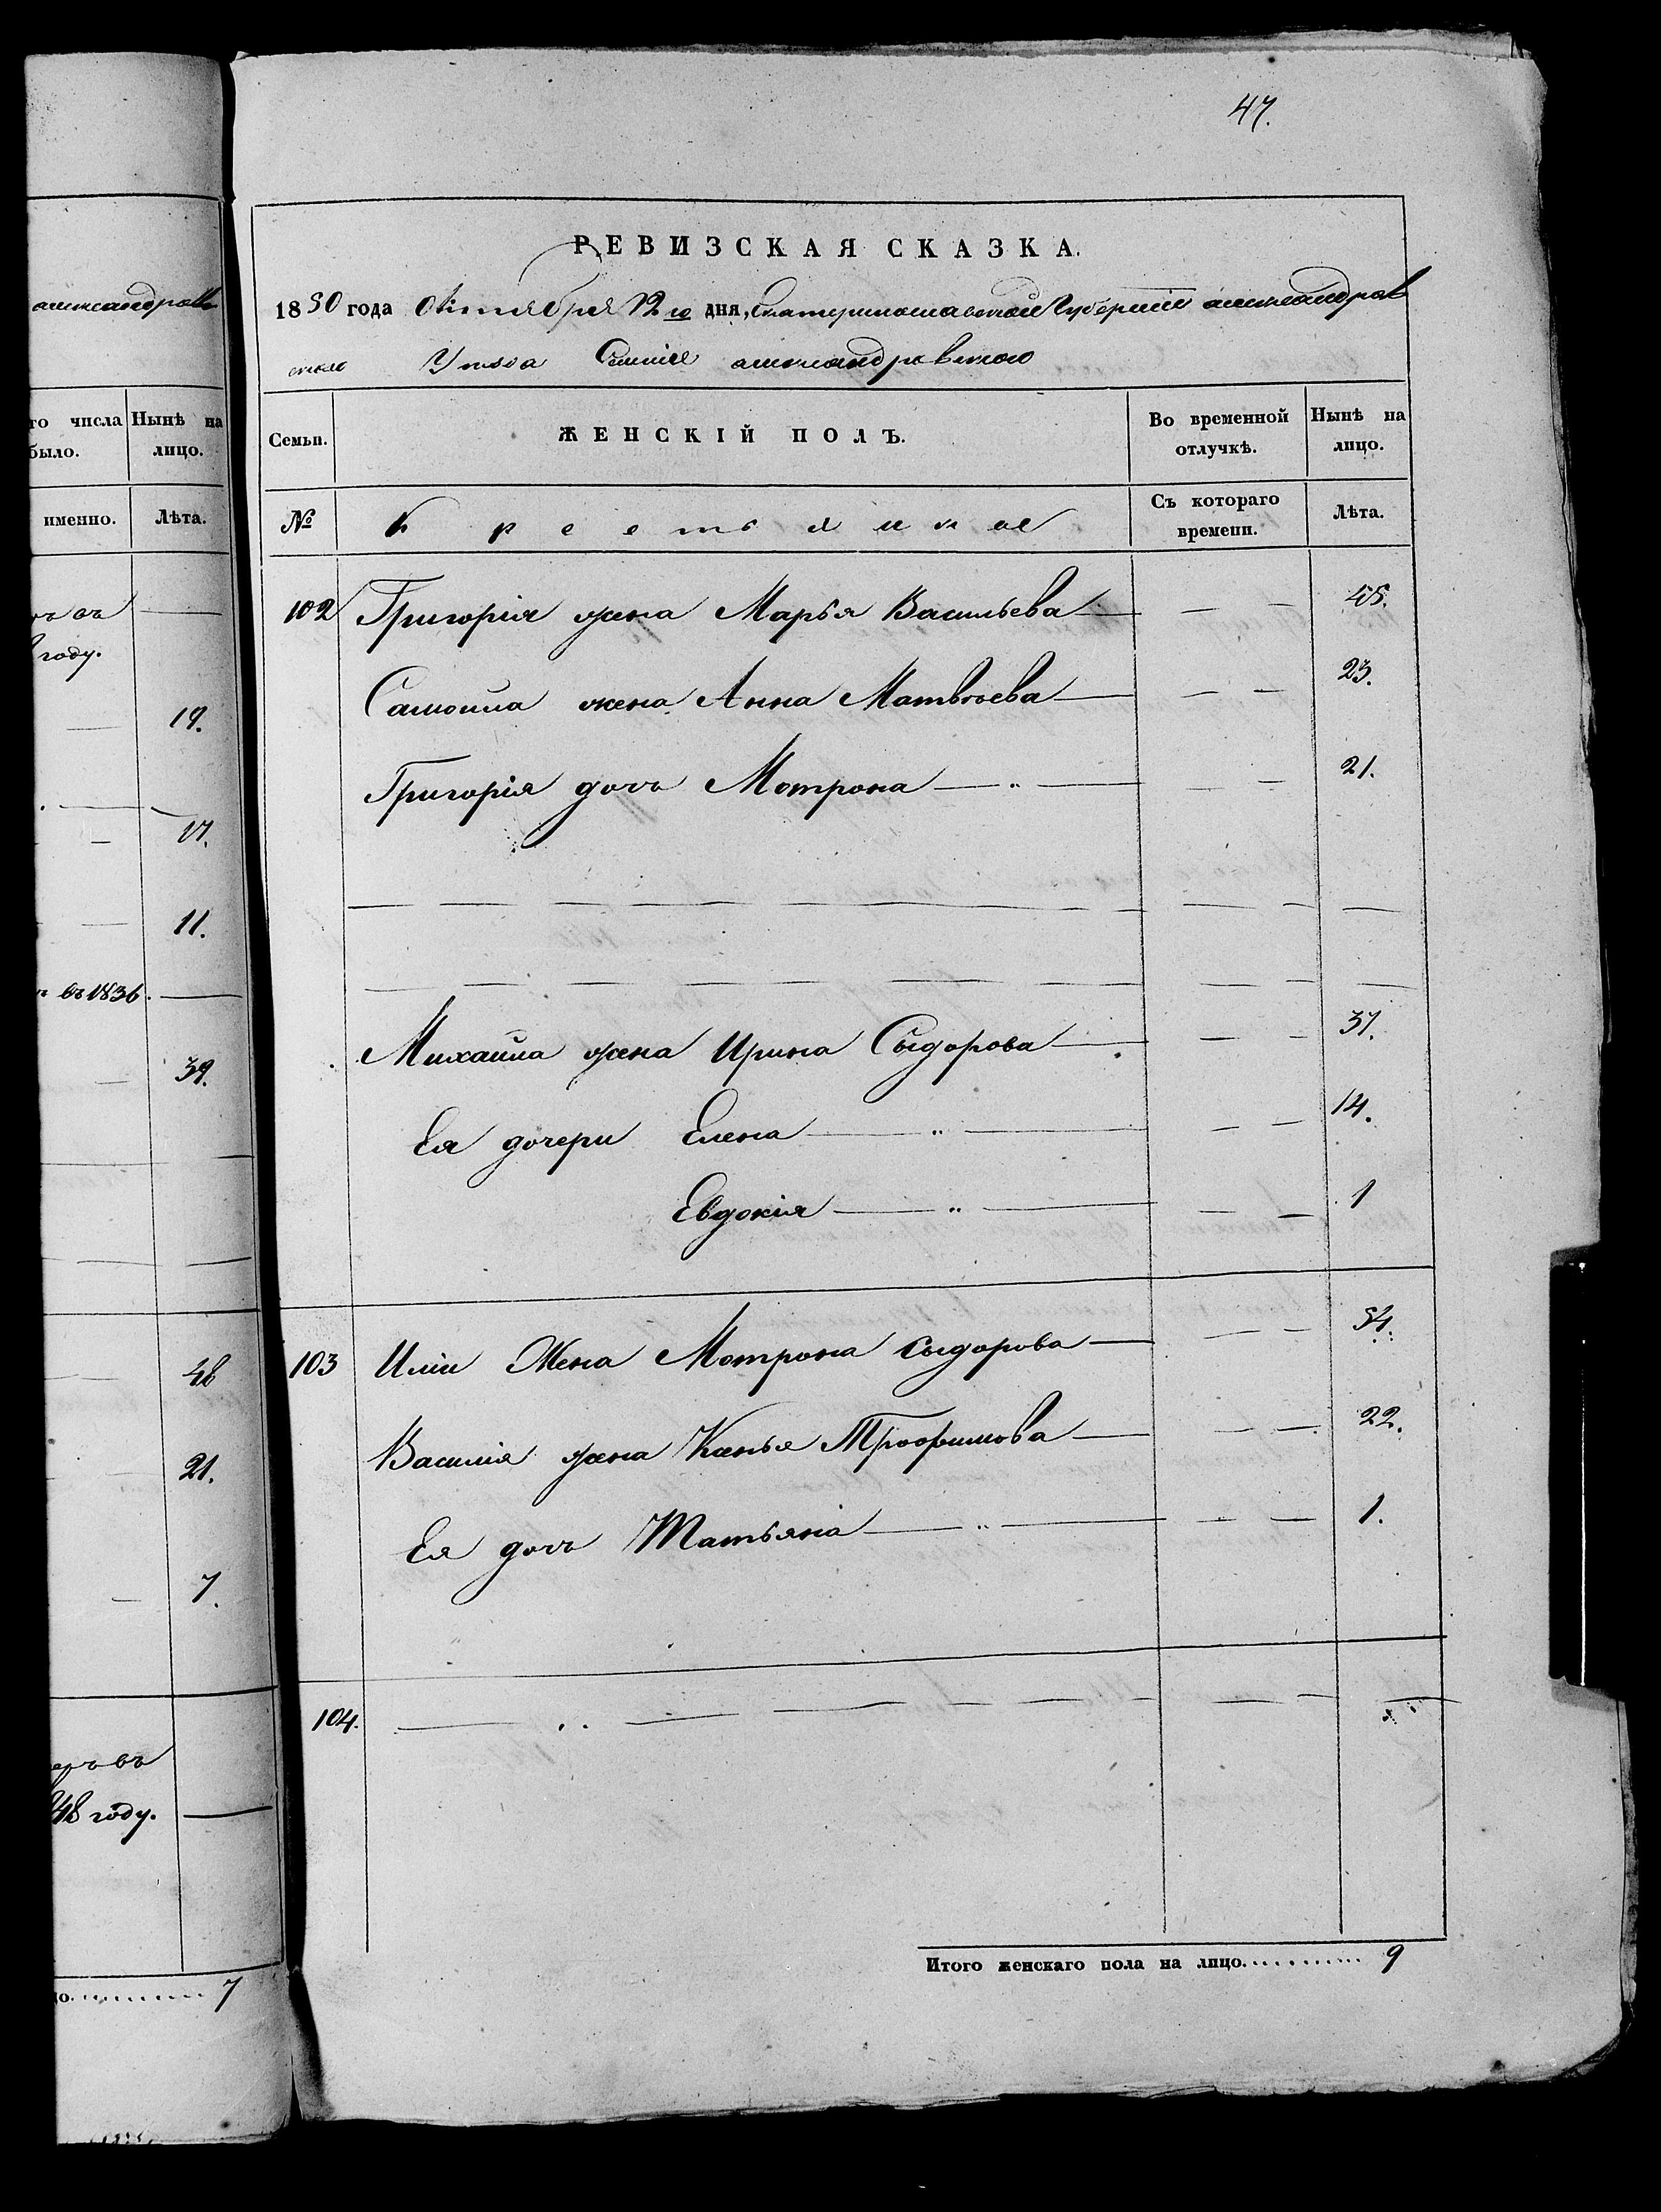 александров
го числа Нынѣ на
было. лицо.
именно. Лѣта.
въ
году.
19.
17.
11.
въ 1836.
39.
48
21.
7.
въ
году.
7
47.
РЕВИЗСКАЯ СКАЗКА.
1850 года Октября 12 го дня, Екатеринославской Губернии александров
ского Уезда Селения александровского
Семьи. ЖЕНСКІЙ ПОЛЪ. Во временной отлучкѣ. Нынѣ на лицо.
№ Крестьянское Съ котораго времени. Лѣта.
102 Григорія жена Марья Васильева — — — 45.
Самоила жена Анна Матвѣева — — — 23.
Григорія дочь Мотрона — „ — — — 21.
Михайла жена Ирина Сыдорова — — — 37.
Ея дочери Елена — „ — — — 14.
Евдокія — „ — — — 1
103 Иліи Жена Мотрона Сыдорова — — — 54.
Василія жена Ксенья Трофимова — — — 22.
Ея дочь Татьяна — „ — — — 1.
104.
Итого женскаго пола на лицо. 9